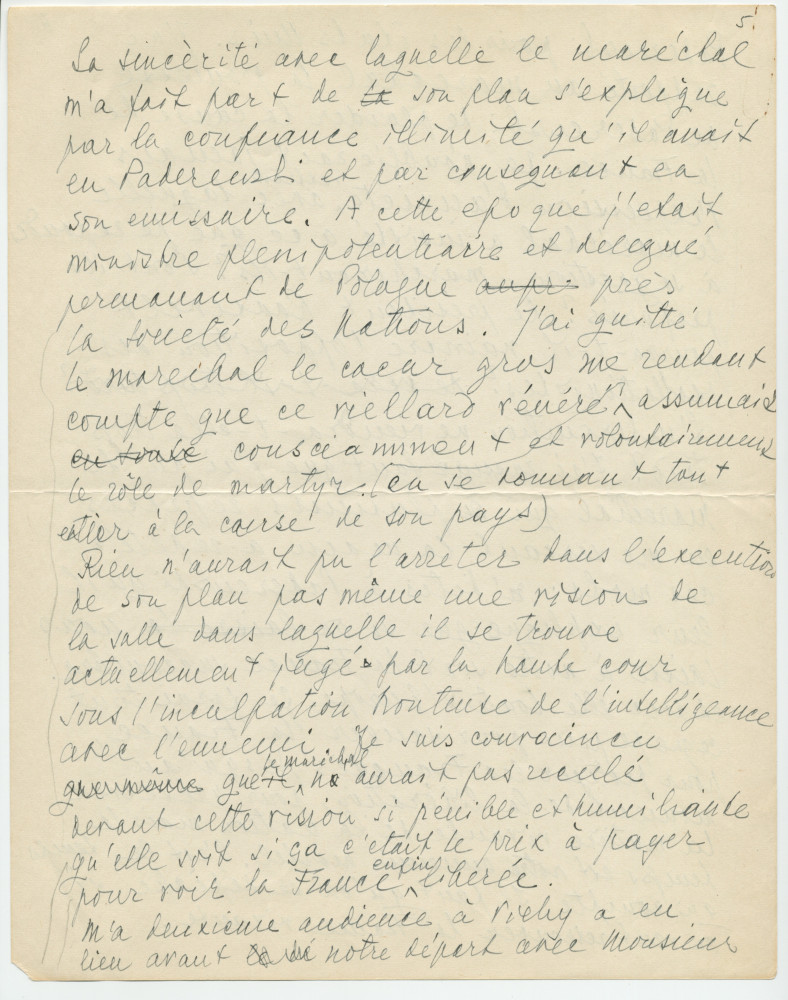 5.
La sincèrité avec laquelle le maréchal
m'a fait part de la son plan s'explique
par la confiance illimité qu'il avait
en Paderewski et par consequant en
son emissaire. A cette epoque j'etait
ministre plenipotentiaire et delegué
permanant de Pologne aupr. près
la societé des Nations. J'ai quitté
le marechal le coeur gros me rendant
compte que ce viellard vénéré assumait
en toute consciamment et volontairement
le rôle de martyr. (en se donnant tout
entier à la cause de son pays)
Rien n'aurait pu l'arreter dans l'execution
de son plan pas même une vision de
la salle dans laquelle il se trouve
actuellement jugé par la haute cour
sous l'inculpation honteuse de l'intelligeance
avec l'ennemi. Je suis convaincu
que même que le marechal n'aurait pas reculé
devant cette vision si pénible et humiliante
qu'elle soit si ça c'était le prix à payer
pour voir la France enfin libérée.
M'a deuxieme audience à Vichy a eu
lieu avant notre départ avec Monsieur